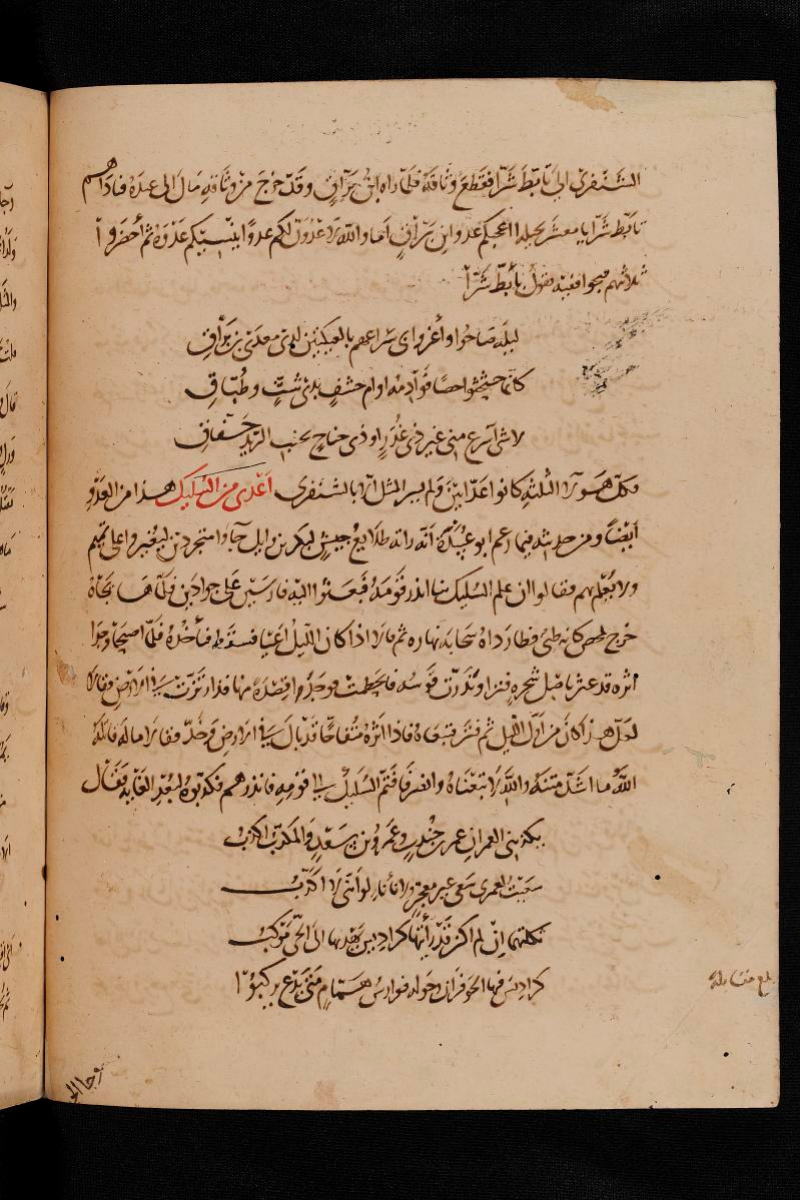 الشَّنفرى الى تأبّط شرّا فقطع وثاقه فلمّا راه ابن برّاق وقد خرج من وثاقه مال الى عنده فناداهم
تأبّط شرّا يا معشر بجيله اعجبكم عدو ابن برّاق اما والله لاعدونّ لكم عدوًا ينسيكم عدوه ثم أحضروا
ثلاثتهم فنجوا ففيه يقول تأبّط شرّا
ليلة صاحوا واغروا بى سراعهم بالعيكتين لدى معدى بن برّاق
كأنّما حثحثوا حصّا قوادمه او ام خشف بذى شثّ وطبّاق
لا شى اسرع منى غير ذى عذر او ذى جناح بجنب الريد خفّاق
وكلّ هولا الثلثه كانوا عدّايين ولم يسر المثل الا بالشنفرى اعدى من السُليك هذا من العدو
أيضًا ومن حديثه فيما زعم ابو عبيدة انّه راته طلايع جيش لبكر بن وايل جاوا متجردين ليغيروا على تميم
ولا يُعْلم بهم فقالوا ان علم السُليك بنا انذر قومه فبعثوا اليه فارسين على جوادين فلمّا هايجاه
خرج يمحص كانه ظبى فطارداه سحابة نهاره ثم قالا اذا كان الليل اعيا فسقط فنأخذه فلمّا اصبحا وجدا
اثره قد عثر باصل شجرة فنزا وندرت قوسه فانحطمت فوجدا قِصدة منها قد ارتزّت فى الارض فقالا
لعلّ هذا كان من اوّل الليل ثم فتر فتبعاه فاذا اثره متفاجًا قد بال فى الارض وخدّ فقالا ماله قاتله
اللّه ما اشدّ متنه والله لا تبعناه وانصرفا فتمّ السُليك الى قومه فانذرهم فكذّبوه لبُعد الغاية فقال
يكذبنى العمران عمرو بن جُندب وعمرو بن سعدٍ والمكذّب اكذب
سعيتُ لعمرى سعى غير معجز ولا نأنأ لو اننى لا اكذّب
ثكلتكما ان لم اكن قد رأيتها كراديس يهديها الى الحىّ موكب
كراديس فيها الحوفزان وحوله فوارس همّام متى يدعُ يركبوا
بلغ مقابله